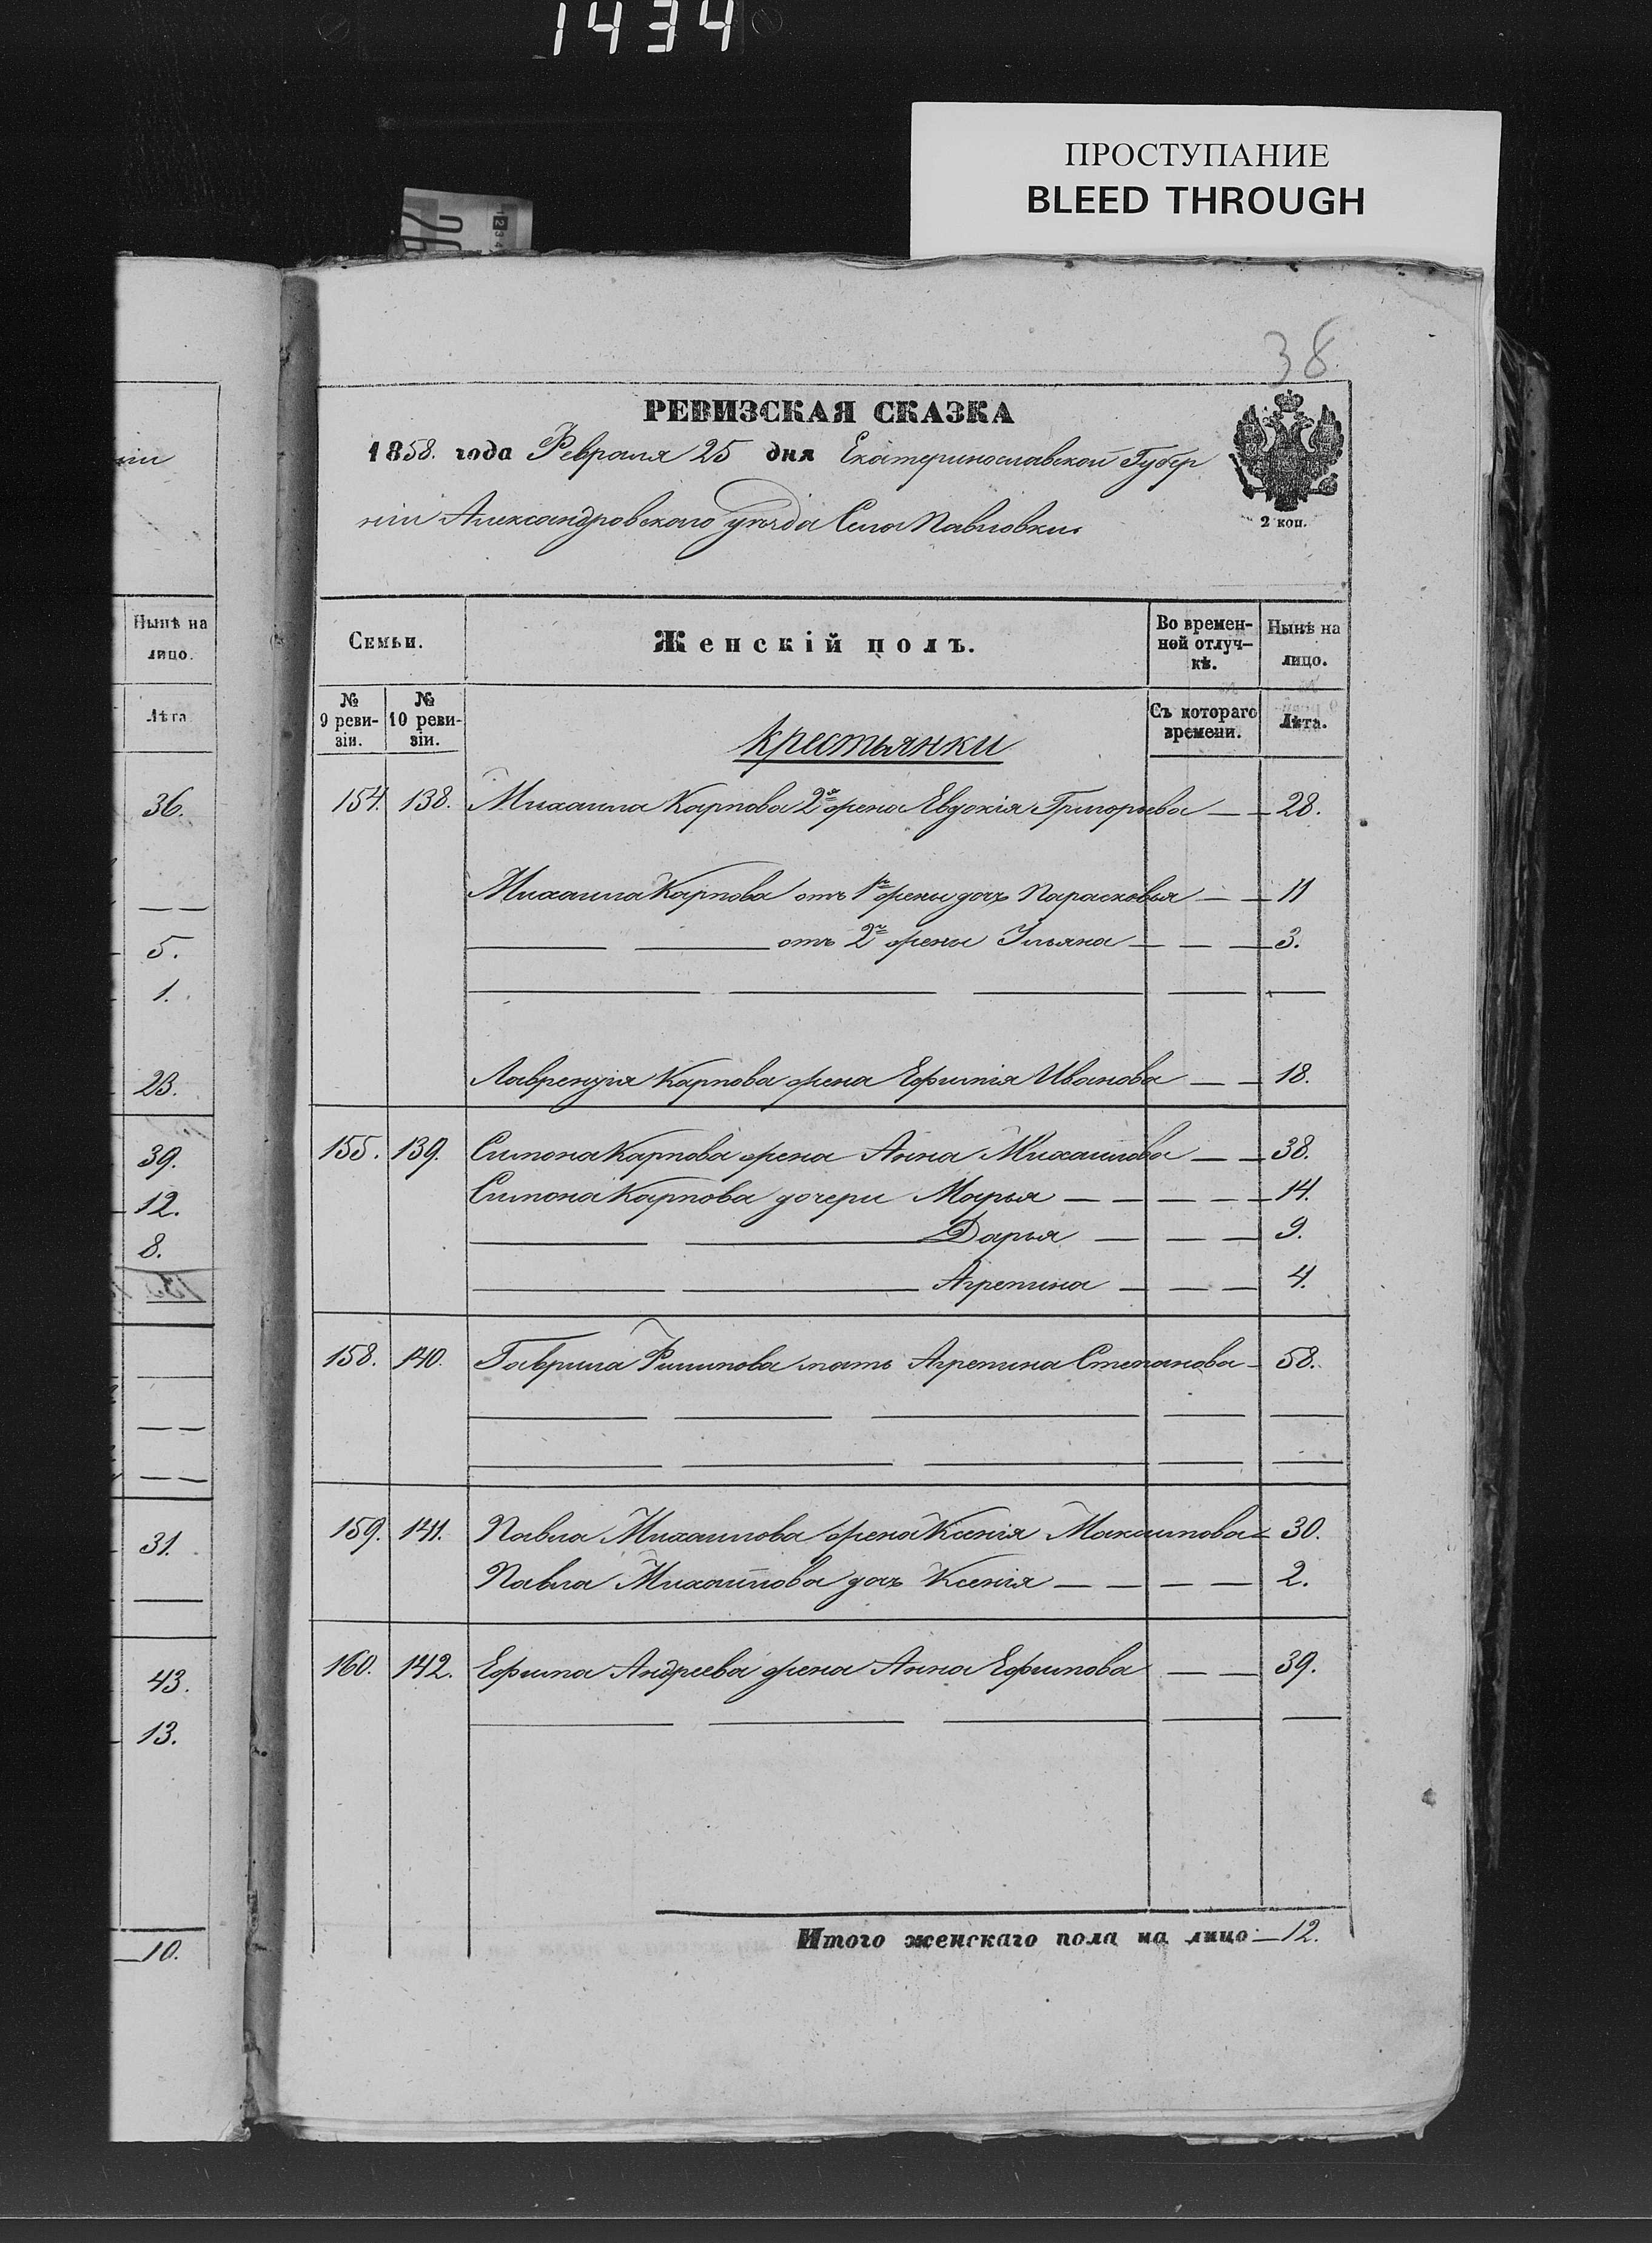 1434
ПРОСТУПАНИЕ
BLEED THROUGH
38.
РЕВИЗСКАЯ СКАЗКА
1858. года Февраля 25 дня Екатеринославской Губер
ніи Александровского уѣзда Села Павловки.
2 коп.
Семьи.
Женскій полъ.
Во времен-
ной отлуч-
кѣ.
Нынѣ на
лицо.
№
9 реви-
зіи.
№
10 реви-
зіи.
Съ котораго
времени.
Лѣта.
Крестьянки
154. 138. Михаила Карпова 2я жена Евдокія Григорьева — — 28.
Михаила Карпова отъ 1й жены дочь Парасковья — — 11
отъ 2й жены Ульяна — — — 3.
Лаврентія Карпова жена Ефимія Иванова — — 18.
155. 139. Симона Карпова жена Анна Михайлова — — 38.
Симона Карпова дочери Марья — — — — — 14.
Дарья — — — 9.
Агрепина — — — 4.
158. 140. Гаврила Филипова мать Агрепина Степанова — 58.
159. 141. Павла Михаилова жена Ксенія Максимова — 30.
Павла Михайлова дочь Ксенія — — — — 2.
160. 142. Ефима Андреева жена Анна Ефимова — — 39.
Итого женскаго пола на лицо — 12.
ніи
Нынѣ на
лицо.
Лѣта
36.
5.
1.
23.
39.
12.
8.
31.
43.
13.
10.